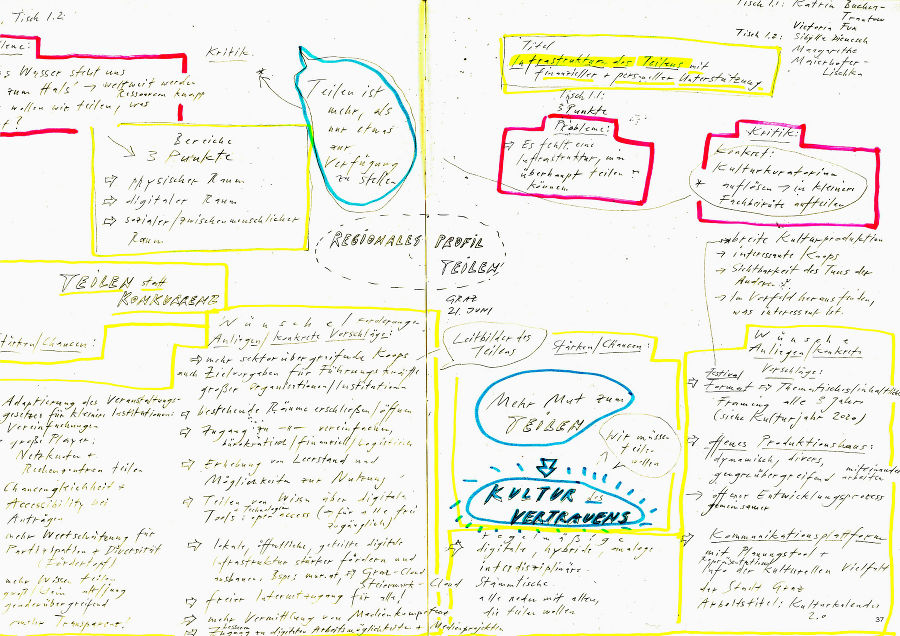 Tisch 1.2:
s Wasser steht uns
zum Hals' → weltweit werden
Ressourcen knapp
wollen wir teilen, was
?
Kritik:
Teilen ist
mehr, als
nur etwas
zur
Verfügung
zu stellen
Bereiche
3 Punkte
⇨ physischer Raum
⇨ digitaler Raum
⇨ sozialer/zwischenmenschlicher
Raum
TEILEN statt
KONKURRENZ
Stärken/Chancen:
Adaptierung des Veranstaltungs-
gesetzes für kleine Institutionen:
Vereinfachungen
große Player:
Netzkarten +
Rechenzentren teilen
Chancengleichheit +
Accessibility bei
Anträgen
mehr Wertschätzung für
Partizipation + Diversität
(Fördertopf)
mehr Wissen teilen
mehr Transparenz!
Wünsche / Forderungen
Anliegen/konkrete Vorschläge:
⇨ mehr sektorübergreifende Koops
auch Zielvorgaben für Führungskräfte
großer Organisationen/Institutionen
⇨ bestehende Räume erschließen/öffnen
⇨ Zugang zu -"- vereinfachen,
bürokratisch/finanziell/logistisch
⇨ Erhebung von Leerstand und
Möglichkeiten zur Nutzung
⇨ Teilen von Wissen über digitale
Tools: open access (→ für alle frei
zugänglich)
⇨ lokale, öffentliche, geteilte digitale
Infrastruktur stärker fördern und
ausbauen. Bsps: mur.at, Graz-Cloud
Steiermark-Cloud
⇨ freier Internetzugang für alle!
⇨ mehr Vermittlung von Medienkompetenz
⇨ Zugang zu digitalen Arbeitsmöglichkeiten + Medienprojekten
REGIONALES PROFIL
TEILEN
GRAZ
21. JUNI
Tisch 1.1: Katrin Bucher-
Trantow
Victoria Fux
Tisch 1.2: Sibylle Dienesch
Margarethe
Maierhofer-
Lischka
Titel
Infrastruktur des Teilens mit
finanzieller + personeller Unterstützung
Tisch 1.1:
3 Punkte
Probleme:
⇨ Es fehlt eine
Infrastruktur, um
überhaupt teilen
können
Kritik:
Konkret:
Kulturkuratorium
* auflösen → in kleinere
Fachbeiräte aufteilen
→ breite Kulturproduktion
→ interessante Koops
→ Sichtbarkeit des Tuns der
Anderen
→ Im Vorfeld herausfinden,
was interessant ist.
Leitbilder des
Teilens
Stärken/Chancen:
Mehr Mut zum
TEILEN
Wir müssen
teilen
wollen
KULTUR des
VERTRAUENS
⇨ regelmäßige
digitale, hybride, analoge
interdisziplinäre
Stammtische
alle reden mit allen,
die teilen wollen
Wünsche
Anliegen/konkrete
Vorschläge:
⇨ Festival
Format ⇨ Thematisches/inhaltliches
Framing alle 3 Jahre
(siehe Kulturjahr 2020)
⇨ offenes Produktionshaus:
dynamisch, divers,
genreübergreifend miteinander
arbeiten
→ offener Entwicklungsprozess
gemeinsamer
⇨ Kommunikationsplattform
mit Planungstool +
Repräsentation
Info der kulturellen Vielfalt
der Stadt Graz
Arbeitstitel: Kulturkalender
2.0
37